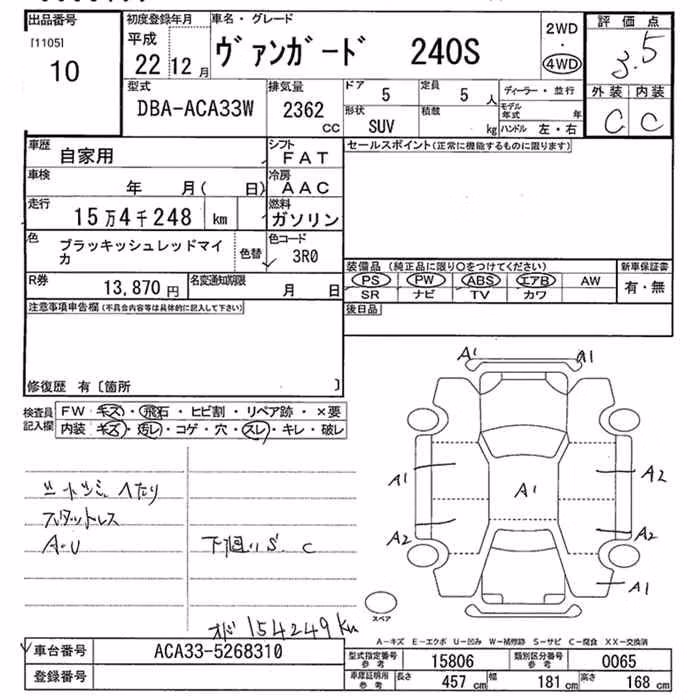 出品番号 初度登録年月 車名・グレード 2WD 評価点
[1105] 平成 ヴァンガード 240S ・ 3.5
10 22 12月 4WD
型式 排気量 ドア 5 定員 5人 ディーラー・並行 外装 内装
DBA-ACA33W 2362 CC 形状 SUV 積載 kg モデル年式 年 C C
ハンドル 左・右
車歴 自家用 シフト FAT セールスポイント(正常に機能するものに限ります)
車検 年 月( 日) 冷房 AAC
走行 15万4千248 km 燃料 ガソリン
色 ブラッキッシュレッドマイカ 色替 色コード 3R0
装備品 (純正品に限り○をつけてください) 新車保証書
R券 13,870円 名変通知期限 月 日 PS PW ABS エアB AW 有・無
SR ナビ TV カワ
注意事項申告欄(不具合内容等は具体的に記入して下さい) 後日品
修復歴 有〔箇所 〕
検査員記入欄 FW キズ・飛石・ヒビ割・リペア跡・×要
内装 キズ・汚レ・コゲ・穴・スレ・キレ・破レ
A1 A1
A1 A2
A1
A2 A2
A1
シートシミ、へたり
スタットレス
A・U 下廻りS、C
スペア
154249km
A-キズ E-エクボ U-凹み W-補修跡 S-サビ C-腐食 XX-交換済
車台番号 ACA33-5268310 型式指定番号 参考 15806 類別区分番号 参考 0065
登録番号 車庫証明用 参考 長さ 457cm 幅 181cm 高さ 168cm